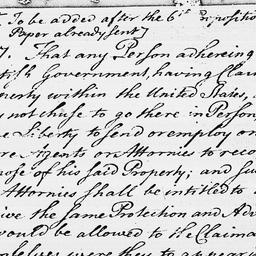 To be added after the 6th Propositio
Paper already sent]
7. That any Person adhereing
British Government, having Clai
perty within the United States,
not chuse to go there in Person,
Liberty to send or employ on
Agents or Attornies to reco
ose of his said Property; and su
Attornies shall be intitled to
ive the same Protection and Adv
would be allowed to the Claima
themselves were they to appear